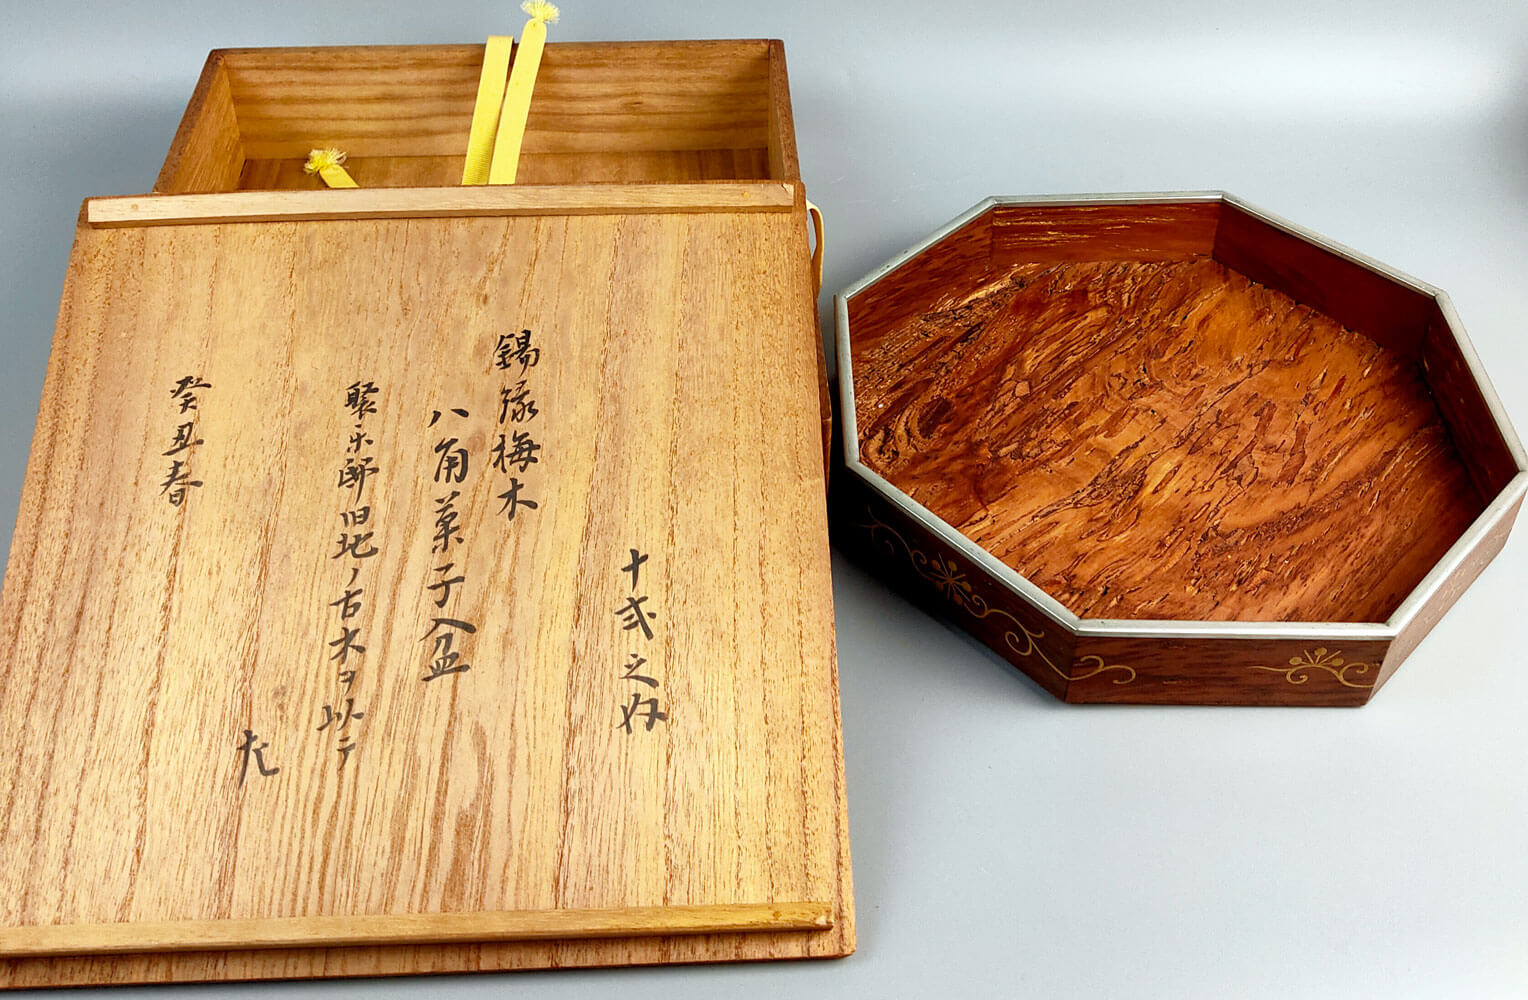 十弐之内
錫縁梅木
八角菓子盆
聚楽邸旧地ノ古木ヲ以テ
癸丑春